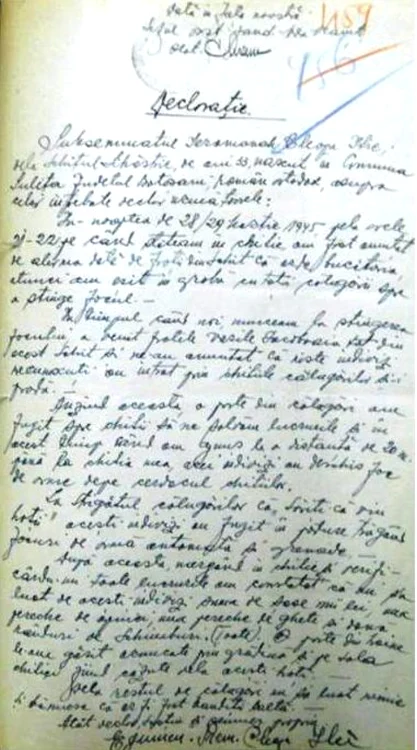 Dată în fața noastră
Șeful post jand.
459
156
Declarație.
Subsemnatul Ieromonah Cleopa Ilie,
dela Schitul Sihăstria, de ani 33, născut în Comuna
Sulița Județul Botoșani, român ortodox, asupra
celor întrebate declar următoarele:
În noaptea de 28/29 Martie 1945, pela orele
21-22 pe când stăteam în chilie am fost anunțat
de alarma dată de frații din schit că arde bucătăria,
atunci am eșit în grabă cu toți călugării spre
a stinge focul. —
În timpul când noi munceam la stingerea
focului, a venit fratele Vasile tot din
acest schit și ne-au anunțat că niște indivizi
necunoscuți au intrat prin chiliile călugărilor și-i
pradă. !
Auzind aceasta o parte din călugări am
fugit spre chilii să ne salvăm lucrurile și în
acest timp când am ajuns la o distanță de 20 m.
până la chilia mea, acei indivizi au deschis foc
de arme depe cerdacul chiliilor.
La strigătul călugărilor că, săriți că vin
hoții" acești indivizi au fugit în pădure trăgând
focuri de armă automată și grenade —
După aceasta mergând în chilie și verifi-
cându-mi toate lucrurile am constatat că au fost
luat de acești indivizi suma de șase mii lei, una
pereche de opinci, una pereche de ghete și două
rânduri de schimburi. (Toate) O parte din haine
le-am găsit aruncate prin grădină și pe sala
chiliei fiind căzute dela acești hoți. —
Dela restul de călugări nu s'a luat nimic
și bănuesc că ar fi fost bandă
Atât declar, susțin și semnez propriu
Egumen. Ierom. Cleopa Ilie